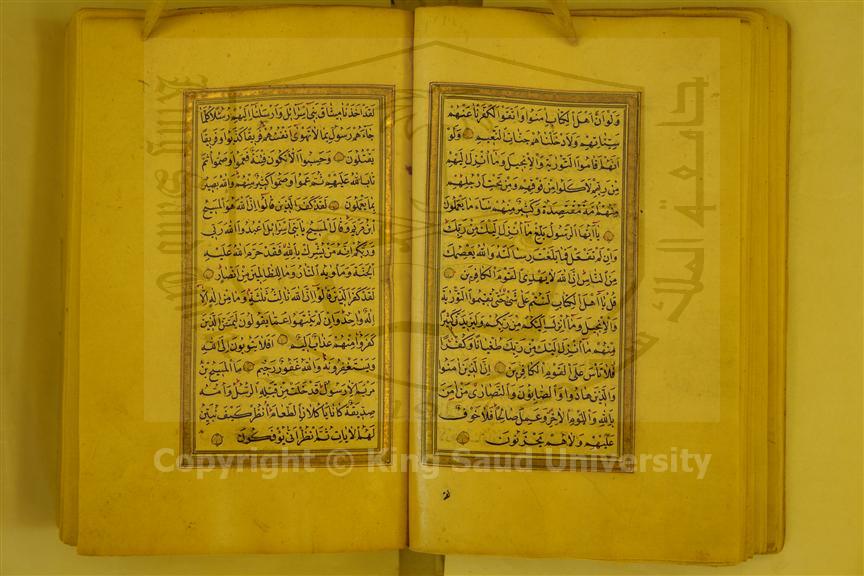 ولو ان اهل الكتاب امنوا واتقوا لكفرنا عنهم
سيئاتهم ولادخلناهم جنات النعيم ولو
انهم اقاموا التورية والانجيل وما انزل اليهم
من ربهم لاكلوا من فوقهم ومن تحت ارجلهم
منهم امة مقتصدة وكثير منهم ساء ما يعملون
يا ايها الرسول بلغ ما انزل اليك من ربك
وان لم تفعل فما بلغت رسالته والله يعصمك
من الناس ان الله لا يهدى القوم الكافرين
قل يا اهل الكتاب لستم على شئ حتى تقيموا التورية
والانجيل وما انزل اليكم من ربكم وليزيدن كثيرا
منهم ما انزل اليك من ربك طغيانا وكفرا
فلا تأس على القوم الكافرين ان الذين امنوا
والذين هادوا والصابؤن والنصارى من امن
بالله واليوم الاخر وعمل صالحا فلا خوف
عليهم ولا هم يحزنون
لقد
لقد اخذنا ميثاق بنى اسرائل وارسلنا اليهم رسلا كلما
جاءهم رسول بما لا تهوى انفسهم فريقا كذبوا وفريقا
يقتلون وحسبوا الا تكون فتنة فعموا وصموا ثم
تاب الله عليهم ثم عموا وصموا كثير منهم والله بصير
بما يعملون لقد كفر الذين قالوا ان الله هو المسيح
ابن مريم وقال المسيح يا بنى اسرائل اعبدوا الله ربى
وربكم انه من يشرك بالله فقد حرم الله عليه
الجنة ومأويه النار وما للظالمين من انصار
لقد كفر الذين قالوا ان الله ثالث ثلثة وما من اله الا
اله واحد وان لم ينتهوا عما يقولون ليمسن الذين
كفروا منهم عذاب اليم افلا يتوبون الى الله
ويستغفرونه والله غفور رحيم ما المسيح بن
مريم الا رسول قد خلت من قبله الرسل وامه
صديقة كانا ياكلان الطعام انظر كيف نبين
لهم الايات ثم انظر انى يؤفكون
جامعة الملك
Copyright © King Saud University